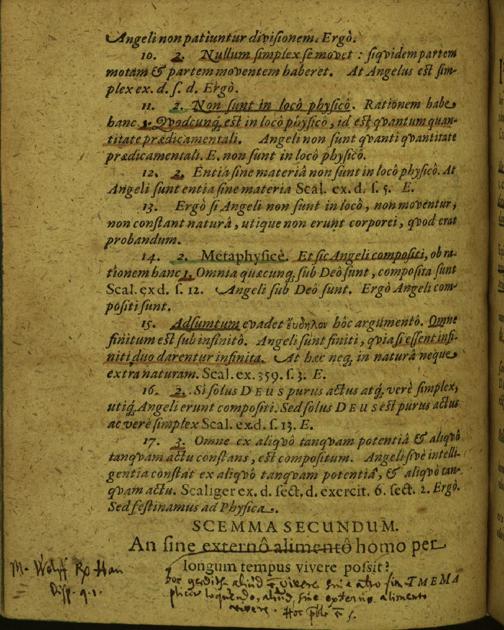 Angeli non patiuntur divisionem. Ergò.
10. 2. Nullum simplex se movet: siquidem partem
motam & partem moventem haberet. At Angelus est sim-
plex ex. d. s. d. Ergò.
11. 2. Non sunt in locô physicô. Rationem habe
hanc 1. Qvodcunq; est in locô physicô, id est qvantum quan-
titate prædicamentali. Angeli non sunt qvanti qvantitate
prædicamentali. E. non sunt in locô physicô.
12. 2. Entia sine materiâ non sunt in locô physicô. At
Angeli sunt entia sine materia Scal. ex. d. s. 5. E.
13. Ergò si Angeli non sunt in locô, non moventur,
non constant naturâ, utique non erunt corporei, qvod erat
probandum.
14. 2. Metaphysicè. Et sic Angeli compositi, ob ra-
tionem hanc 1. Omnia quæcunq; sub Deô sunt, composita sunt
Scal. ex d. s. 12. Angeli sub Deô sunt. Ergò Angeli com-
positi sunt.
15. Adsumtum evadet εὔδηλον hôc argumentô. Omne
finitum est sub infinitô. Angeli sunt finiti, qvia si essent infi-
niti duo darentur infinita. At hæc neq; in naturâ neque
extra naturam. Scal. ex. 359. s. 3. E.
16. 2. Si solus DEUS purus actus atq; verè simplex,
utiq; Angeli erunt compositi. Sed solus DEUS est purus actus
ac verè simplex Scal. ex d. s. 13. E.
17. 3. Omne ex aliqvô tanqvam potentiâ & aliqvô
tanqvam actu constans, est compositum. Angeli sive intelli-
gentia constat ex aliqvô tanqvam potentiâ, & aliqvô tan-
qvam actu. Scaliger ex. d. sect. d. exercit. 6. sect. 2. Ergò.
Sed festinamus ad Physica.
SCEMMA SECUNDUM.
An sine externô alimentô homo per
longum tempus vivere possit?
M. Wolff
Disp. 9.1.
aliud vivere
TMEMA
loquendo, aliud, sine externo alimento
vivere.